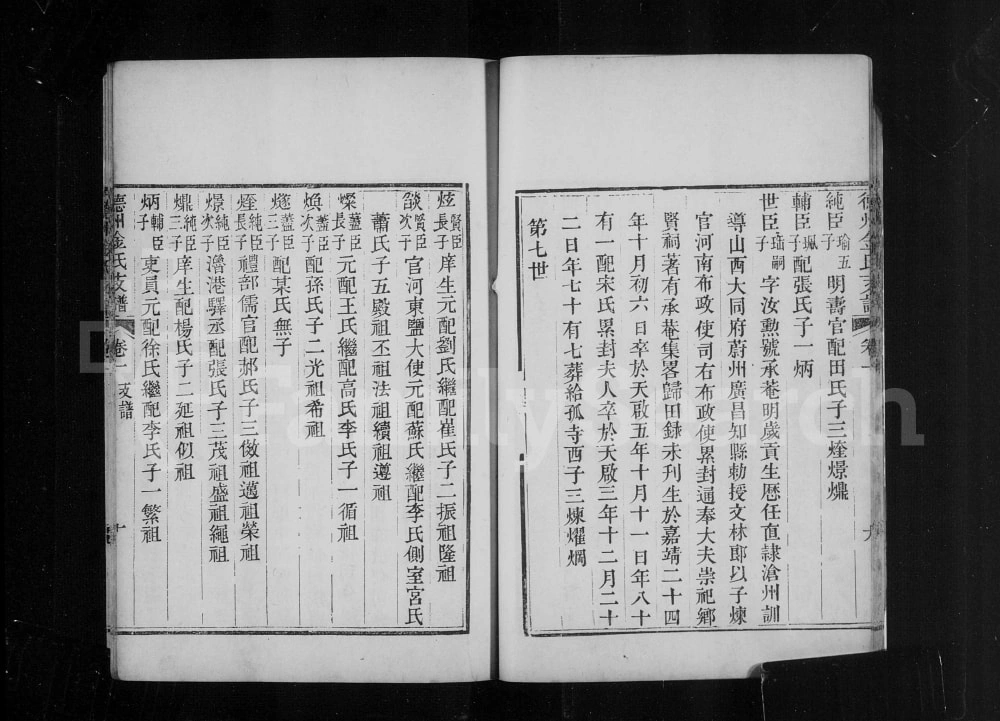 純臣瑜五子明壽官配田氏子三煃燝爌
輔臣珮子配張氏子一炳
世臣瑞嗣子字汝勳號承菴明歲貢生歷任直隸滄州訓
導山西大同府蔚州廣昌知縣勅授文林郎以子煉
官河南布政使司右布政使累封通奉大夫崇祀鄉
賢祠著有承菴集畧歸田錄未刊生於嘉靖二十四
年十月初六日卒於天啟五年十月十一日年八十
有一配宋氏累封夫人卒於天啟三年十二月二十
二日年七十有七葬給孤寺西子三煉燿燗
第七世
炫賢臣長子庠生元配劉氏繼配崔氏子二振祖隆祖
燄賢臣次子官河東鹽大使元配蘇氏繼配李氏側室宮氏
蕭氏子五殿祖丕祖法祖續祖遵祖
燦藎臣長子元配王氏繼配高氏李氏子一循祖
煥藎臣次子配孫氏子二光祖希祖
藎臣三子配某氏無子
煃純臣長子禮部儒官配郝氏子三儆祖邁祖榮祖
燝純臣次子魯港驛丞配張氏子三茂祖盛祖繩祖
爌純臣三子庠生配楊氏子二延祖似祖
炳輔臣子吏員元配徐氏繼配李氏子一繁祖
德州金氏支譜 卷一 支譜 十
FamilySearch